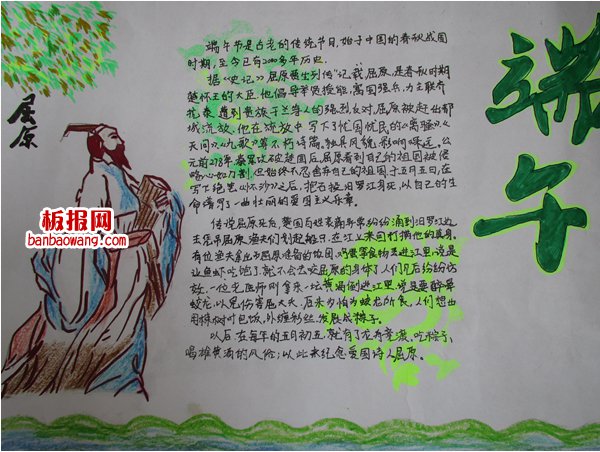 端午
屈原
端午节是古老的传统节日,始于中国的春秋战国
时期,至今已有2000多年历史.
据《史记》屈原贾生列传"记载,屈原,是春秋时期
楚怀王的大臣.他倡导举贤授能,富国强兵,力主联齐
抗秦,遭到贵族子兰等人的强烈反对,屈原被赶出都
城流放.他在流放中写下了忧国忧民的《离骚》《
天问》《九歌》等不朽诗篇.独具风貌,影响味远.公
元前278年,秦军攻破楚国后,屈原看到自己的祖国被侵
略,心如刀割,但始终不忍舍弃自己的祖国,于五月五日,在
写下绝笔《怀沙》之后,把石投汨罗江身死,以自己的生
命谱写了一曲壮丽的爱国主义乐章.
传说屈原死后,楚国百姓哀痛异常纷纷涌到汨罗江边
去凭吊屈原.渔夫们划起船只,在江上来回打捞他的真身.
有位渔夫拿出为屈原准备的饭团,鸡蛋等食物丢进江里,说是
让鱼虾吃饱了就不会去咬屈原的身体了.人们见后纷纷仿
效.一位老医师则拿来一坛黄酒倒进江里,说是要醉晕
蛟龙,以免伤害屈大夫.后来为怕为蛟龙所食,人们想出
用楝树叶包饭,外缠彩丝,发展成粽子.
以后,在每年的五月初五,就有了龙舟竞渡、吃粽子、
喝雄黄酒的风俗;以此来纪念爱国诗人屈原.
板报网
banbaowang.com